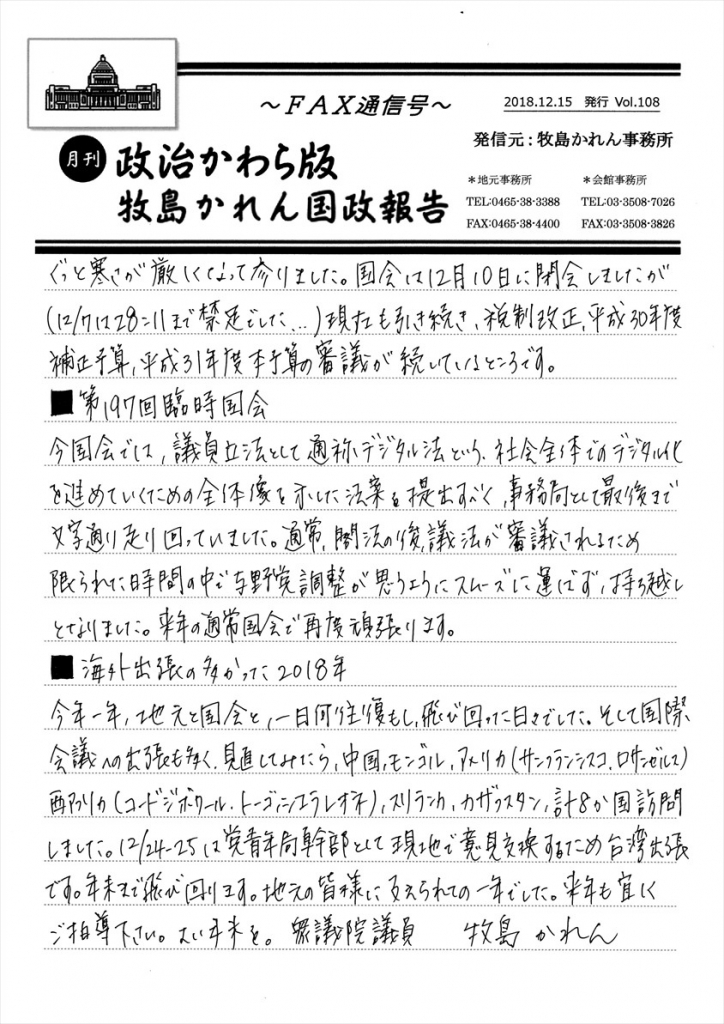 ～FAX通信号～
2018.12.15 発行 Vol.108
月刊
政治かわら版
牧島かれん国政報告
発信元:牧島かれん事務所
＊地元事務所 ＊会館事務所
TEL:0465-38-3388 TEL:03-3508-7026
FAX:0465-38-4400 FAX:03-3508-3826
ぐっと寒さが厳しくなって参りました。国会は12月10日に閉会しましたが
(12/7は28=11まで禁足でした…)現在も引き続き、税制改正、平成30年度
補正予算、平成31年度本予算の審議が続いているところです。
■第197回臨時国会
今国会では、議員立法として通称デジタル法という、社会全体でのデジタル化
を進めていくための全体像を示した法案を提出すべく、事務局として最後まで
文字通り走り回っていました。通常、閣法の後、議法が審議されるため
限られた時間の中で与野党調整が思うようにスムーズに運ばず、持ち越し
となりました。来年の通常国会で再度頑張ります。
■海外出張の多かった2018年
今年一年、地元と国会と、一日何往復もし、飛び回った日々でした。そして国際
会議への出張も多く、見直してみたら、中国、モンゴル、アメリカ(サンフランシスコ、ロサンゼルス)
西アフリカ(コートジボワール、トーゴ、シエラレオネ)、スリランカ、カザフスタン、計8か国訪問
しました。12/24-25は党青年局幹部として現地で意見交換するため台湾出張
です。年末まで飛び回ります。地元の皆様に支えられての一年でした。来年も宜しく
ご指導下さい。よい年末を。 衆議院議員 牧島かれん